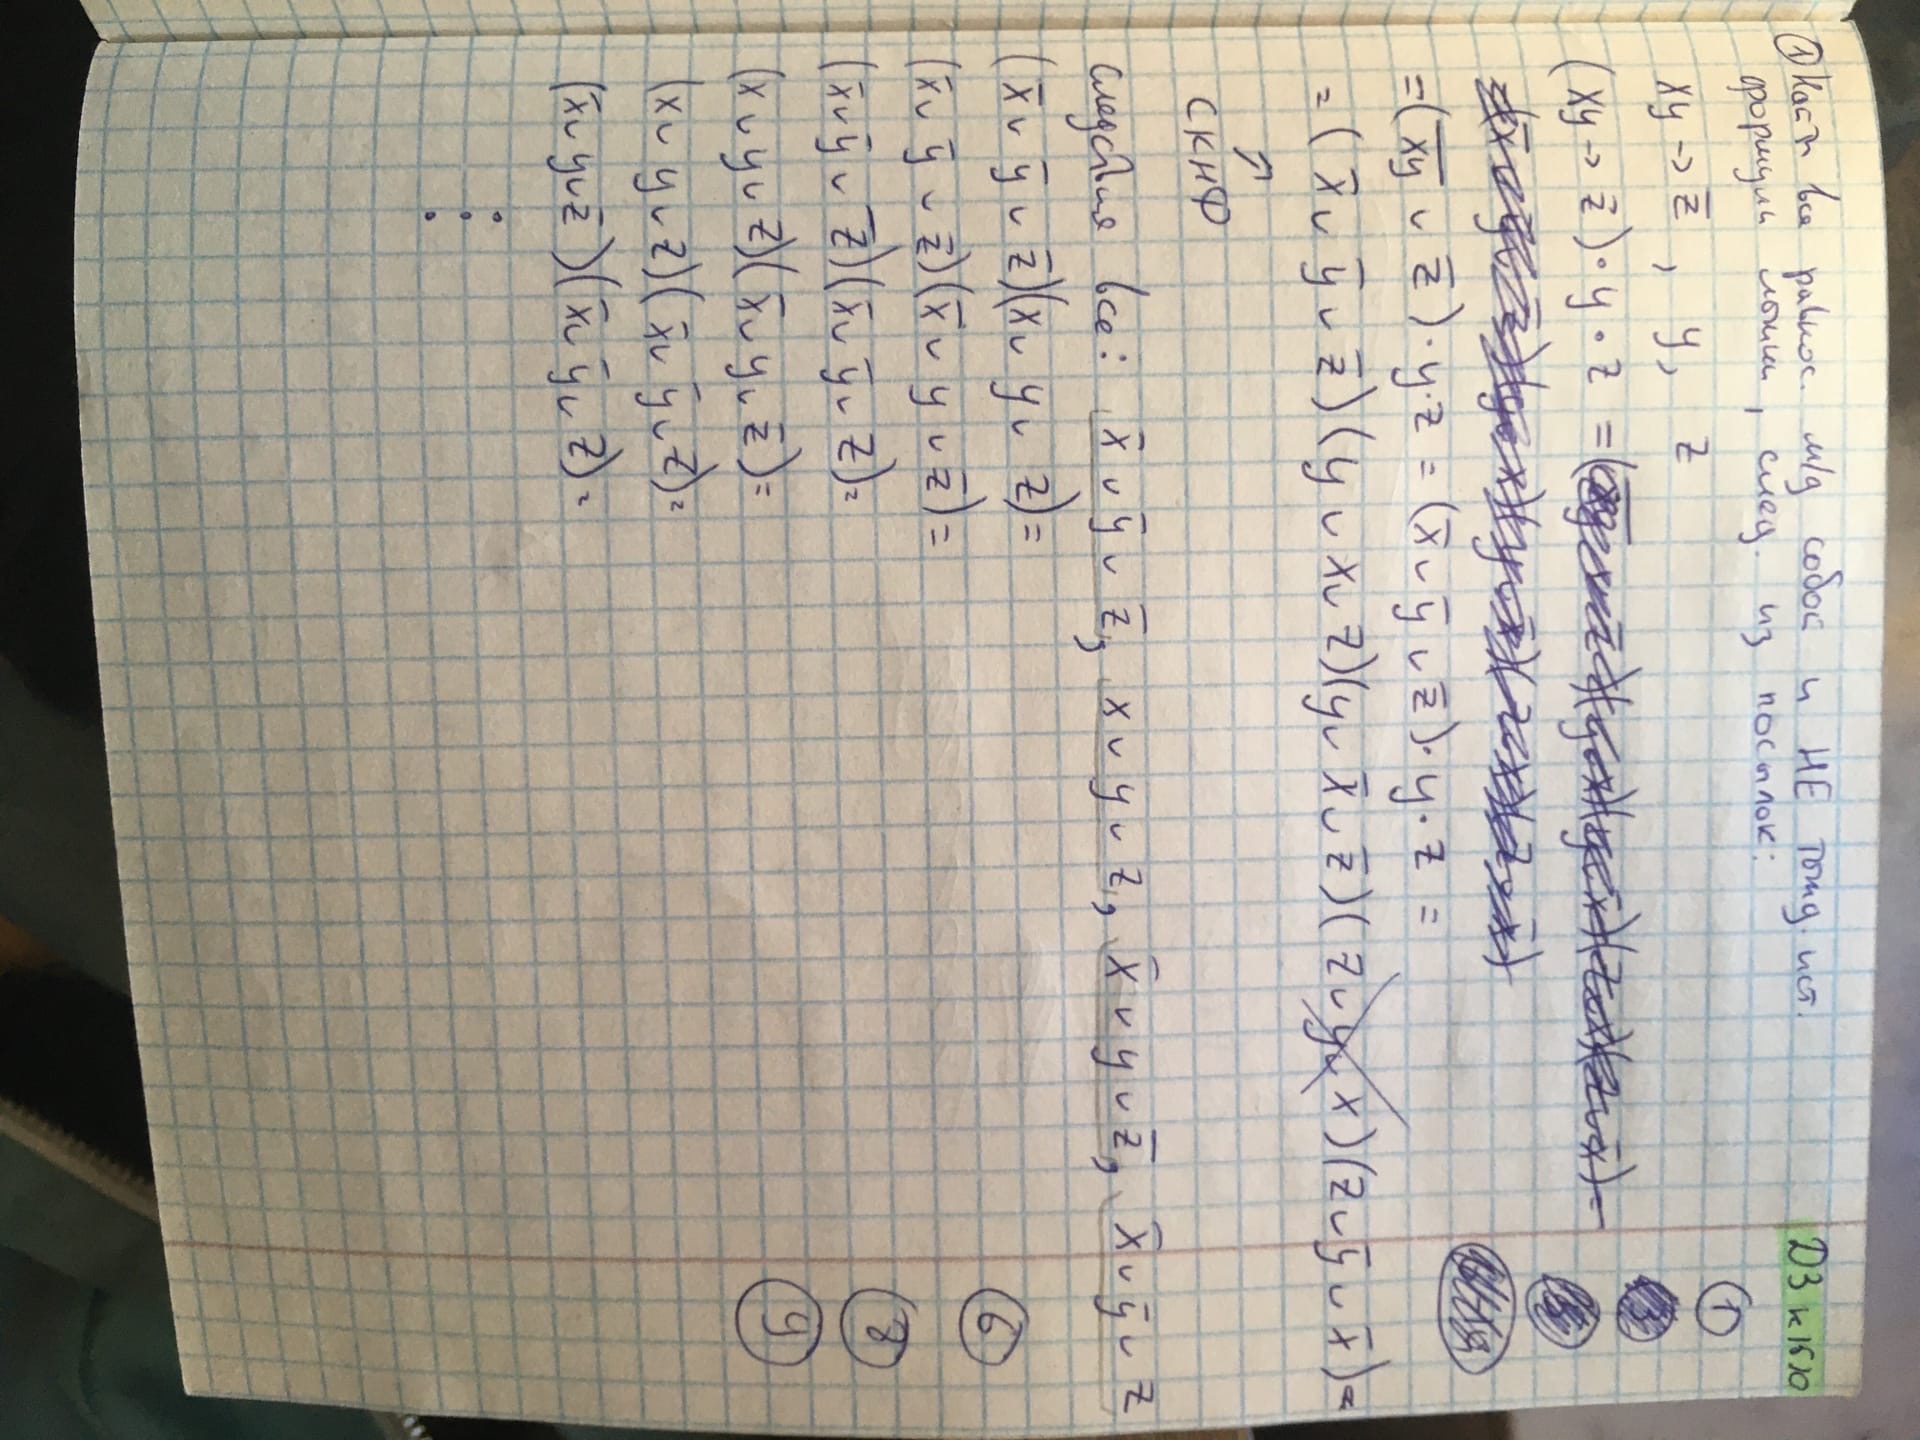 ДЗ к 15/10
① Найти все равнос. м/д собой и НЕ тожд. ист.
формулы логики, след. из посылок:
①
xy → z̅, y, z
(xy → z̅) · y · z =
= (x̅y̅ ∨ z̅) · y · z = (x̅ ∨ y̅ ∨ z̅) · y · z =
= (x̅ ∨ y̅ ∨ z̅)(y ∨ x ∨ z)(y ∨ x̅ ∨ z̅)(z ∨ y ∨ x)(z ∨ y̅ ∨ x̅) =
СКНФ
следствия все: x̅ ∨ y̅ ∨ z̅, x ∨ y ∨ z, x̅ ∨ y ∨ z̅, x̅ ∨ y̅ ∨ z
(x̅ ∨ y̅ ∨ z̅)(x ∨ y ∨ z) =
⑥
(x̅ ∨ y̅ ∨ z̅)(x̅ ∨ y ∨ z̅) =
(x̅ ∨ y̅ ∨ z̅)(x̅ ∨ y̅ ∨ z) =
⑧
(x ∨ y ∨ z)(x̅ ∨ y ∨ z̅) =
⑨
(x ∨ y ∨ z)(x̅ ∨ y̅ ∨ z) =
(x̅ ∨ y ∨ z̅)(x̅ ∨ y̅ ∨ z) =